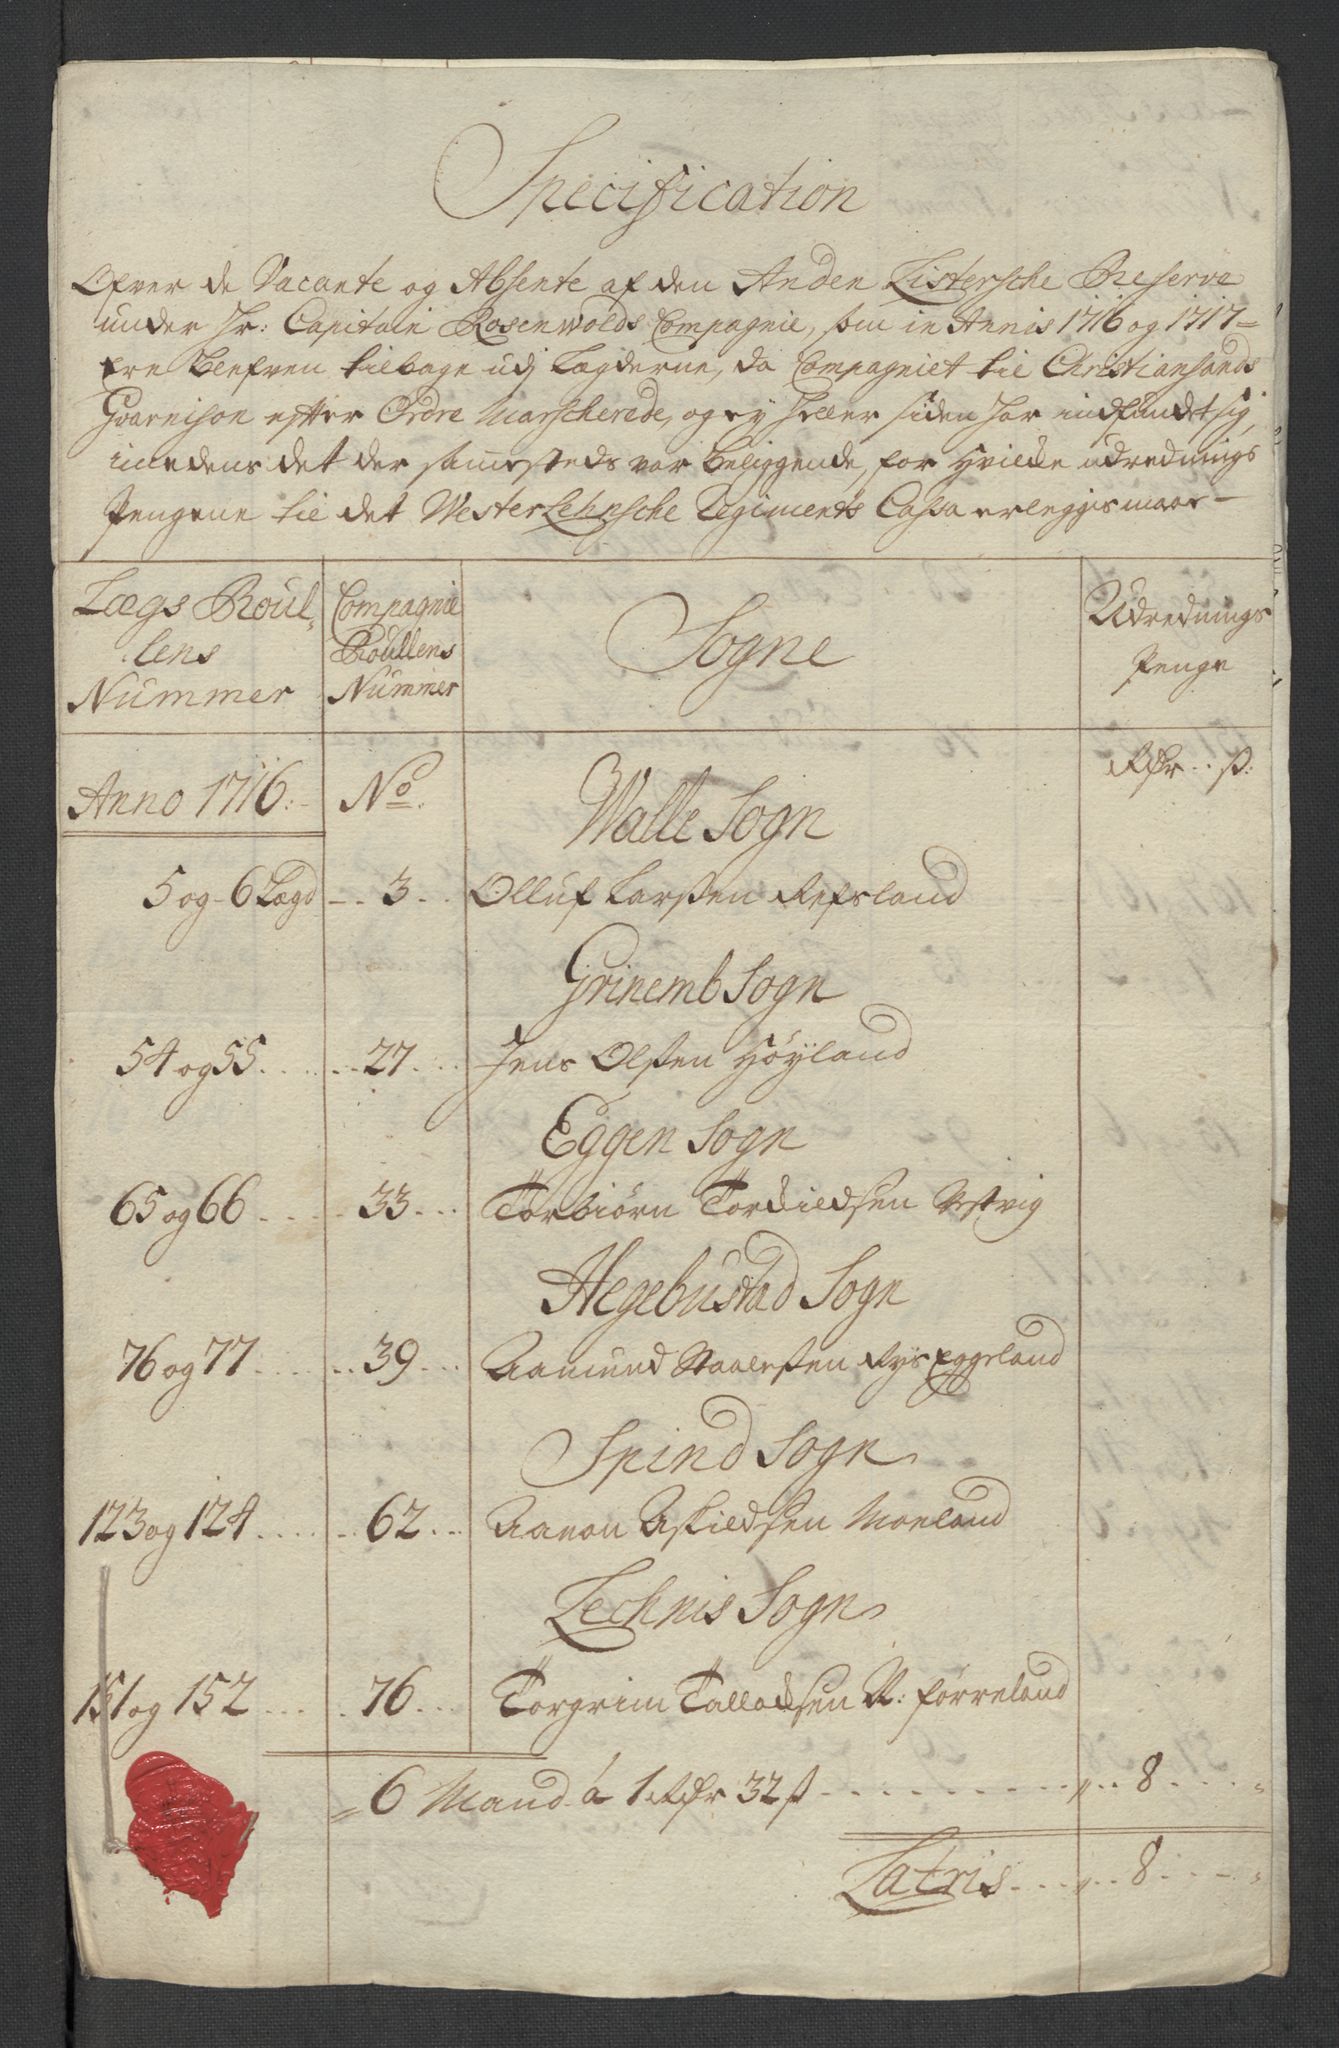 Specification
Ofver de Vacante og Absente af den Anden Listersche Reserve
under Hr: Capitain Rosenwolds Compagnie, som in Annis 1716 og 1717
ere blefven tilbage udj Lægderne, da Compagniet til Christiansands
Gvarnison efter Ordre Marscherede, og ey heller siden har indfundet sig,
imedens det der sammesteds var beliggende, for hvilke udrednings
Pengene til det WesterLehnsche Regiments Cassa erleggis maae
Lægs Roul-
lens
Nummer
Compagnie
Roullens
Nummer
Sogne
Udrednings
Penge
Anno 1716:
No.
Rdr .. s:
Walle Sogn
5 og 6 Lægd .. 3 .. Olluf Larsen Refsland
Grinemb Sogn
54 og 55 .... 27 ... Jens Olsen Höyland
Eggen Sogn
65 og 66 .... 33 ... Torbiörn Tordildsen Vestvig
Hegebustad Sogn
76 og 77 .... 39 ... Aamund Staalesen Rys Eggeland
Spind Sogn
123 og 124 .... 62 ... Aanon Askildsen Moeland
Lechnis Sogn
151 og 152 .... 76 ... Torgrim Talladsen N: Förreland
6 Mand á 1 Rdr 32 s .......... 8 ....
Latris .... 8 ....